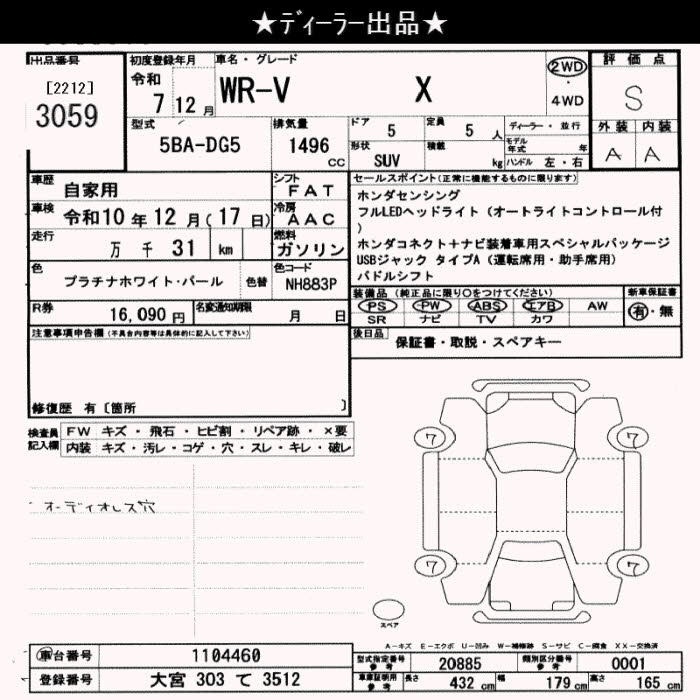 ★ディーラー出品★
出品番号
[2212]
3059
初度登録年月
令和
7 12 月
車名・グレード
WR-V X
2WD
・
4WD
評価点
S
外装 内装
A A
型式
5BA-DG5
排気量
1496
cc
ドア 5
定員 5 人
形状 SUV
積載 kg
ディーラー・並行
モデル年式 年
ハンドル 左・右
車歴 自家用
シフト FAT
車検 令和10年12月(17日)
冷房 AAC
走行 万 千 31 km
燃料 ガソリン
色 プラチナホワイト・パール 色替
色コード NH883P
R券 16,090円
名変通知期限 月 日
セールスポイント(正常に機能するものに限ります)
ホンダセンシング
フルLEDヘッドライト(オートライトコントロール付
)
ホンダコネクト+ナビ装着車用スペシャルパッケージ
USBジャック タイプA(運転席用・助手席用)
パドルシフト
装備品(純正品に限り○をつけてください)
PS PW ABS エアB AW
SR ナビ TV カワ
新車保証書
有・無
後日品 保証書・取説・スペアキー
注意事項申告欄(不具合内容等は具体的に記入して下さい)
修復歴 有〔箇所 〕
検査員記入欄
FW キズ・飛石・ヒビ割・リペア跡・×要
内装 キズ・汚レ・コゲ・穴・スレ・キレ・破レ
オーディオレス穴
7 7
7 7
スペア
A-キズ E-エクボ U-凹み W-補修跡 S-サビ C-腐食 XX-交換済
車台番号 1104460
登録番号 大宮 303 て 3512
型式指定番号 参考 20885
類別区分番号 参考 0001
車庫証明用 参考 長さ 432 cm 幅 179 cm 高さ 165 cm